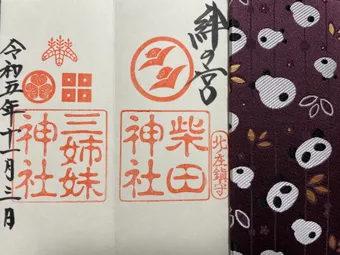 絆の宮
柴田神社
北庄鎮守
三姉妹神社
令和五年十一月三日